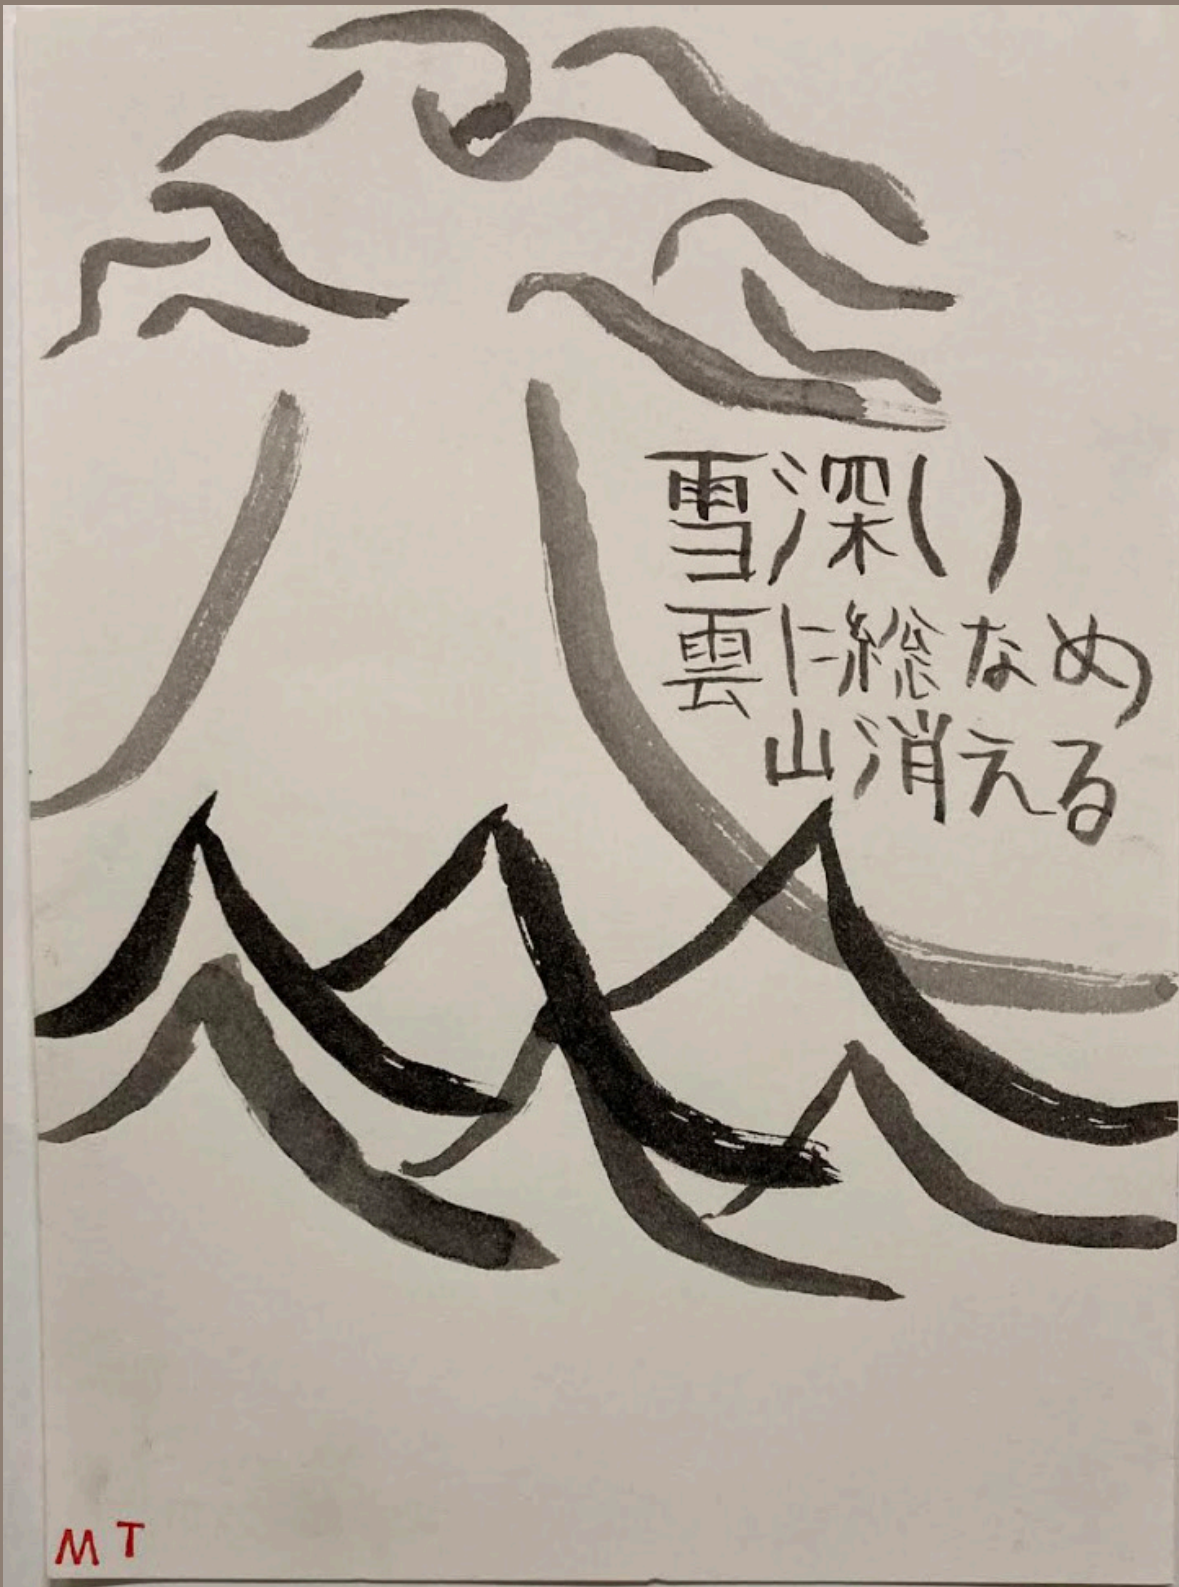 雪深い
雲に総なめ
山消える
M T